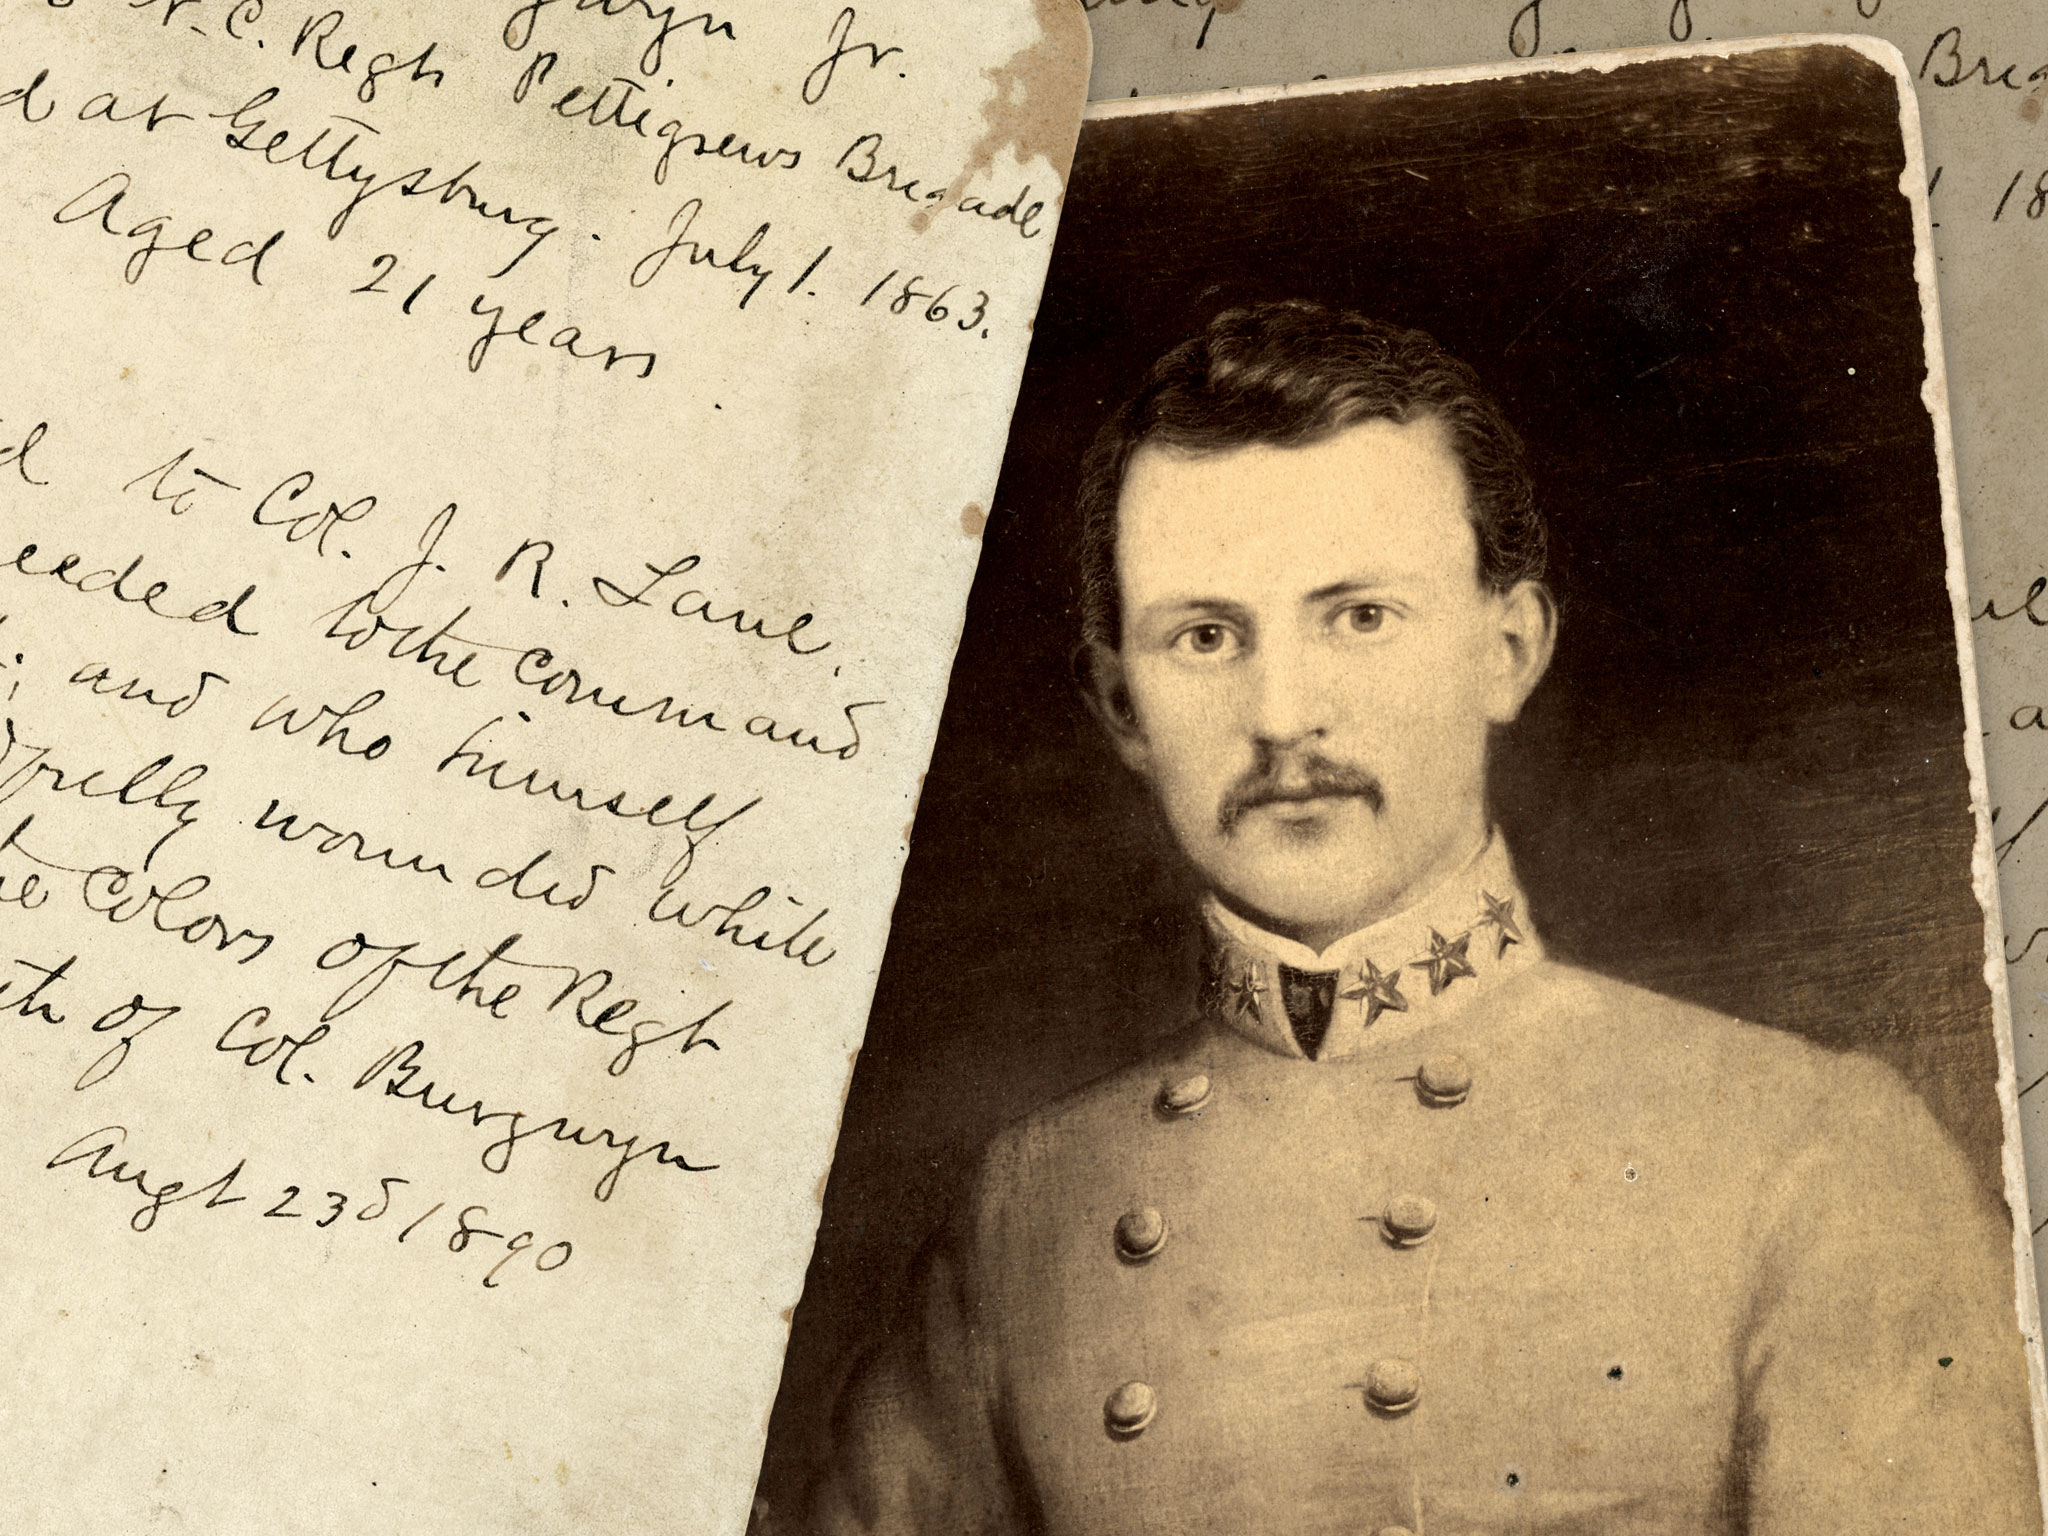 Jr.
N.C. Regt Pettigrews Brigade
d at Gettysburg. July 1. 1863.
Aged 21 years
d to Col. J. R. Lane.
eeded to the command
; and who himself
fully wounded while
e Colors of the Regt
th of Col. Burgwyn
Augt 23d 1890
Brig
1. 18